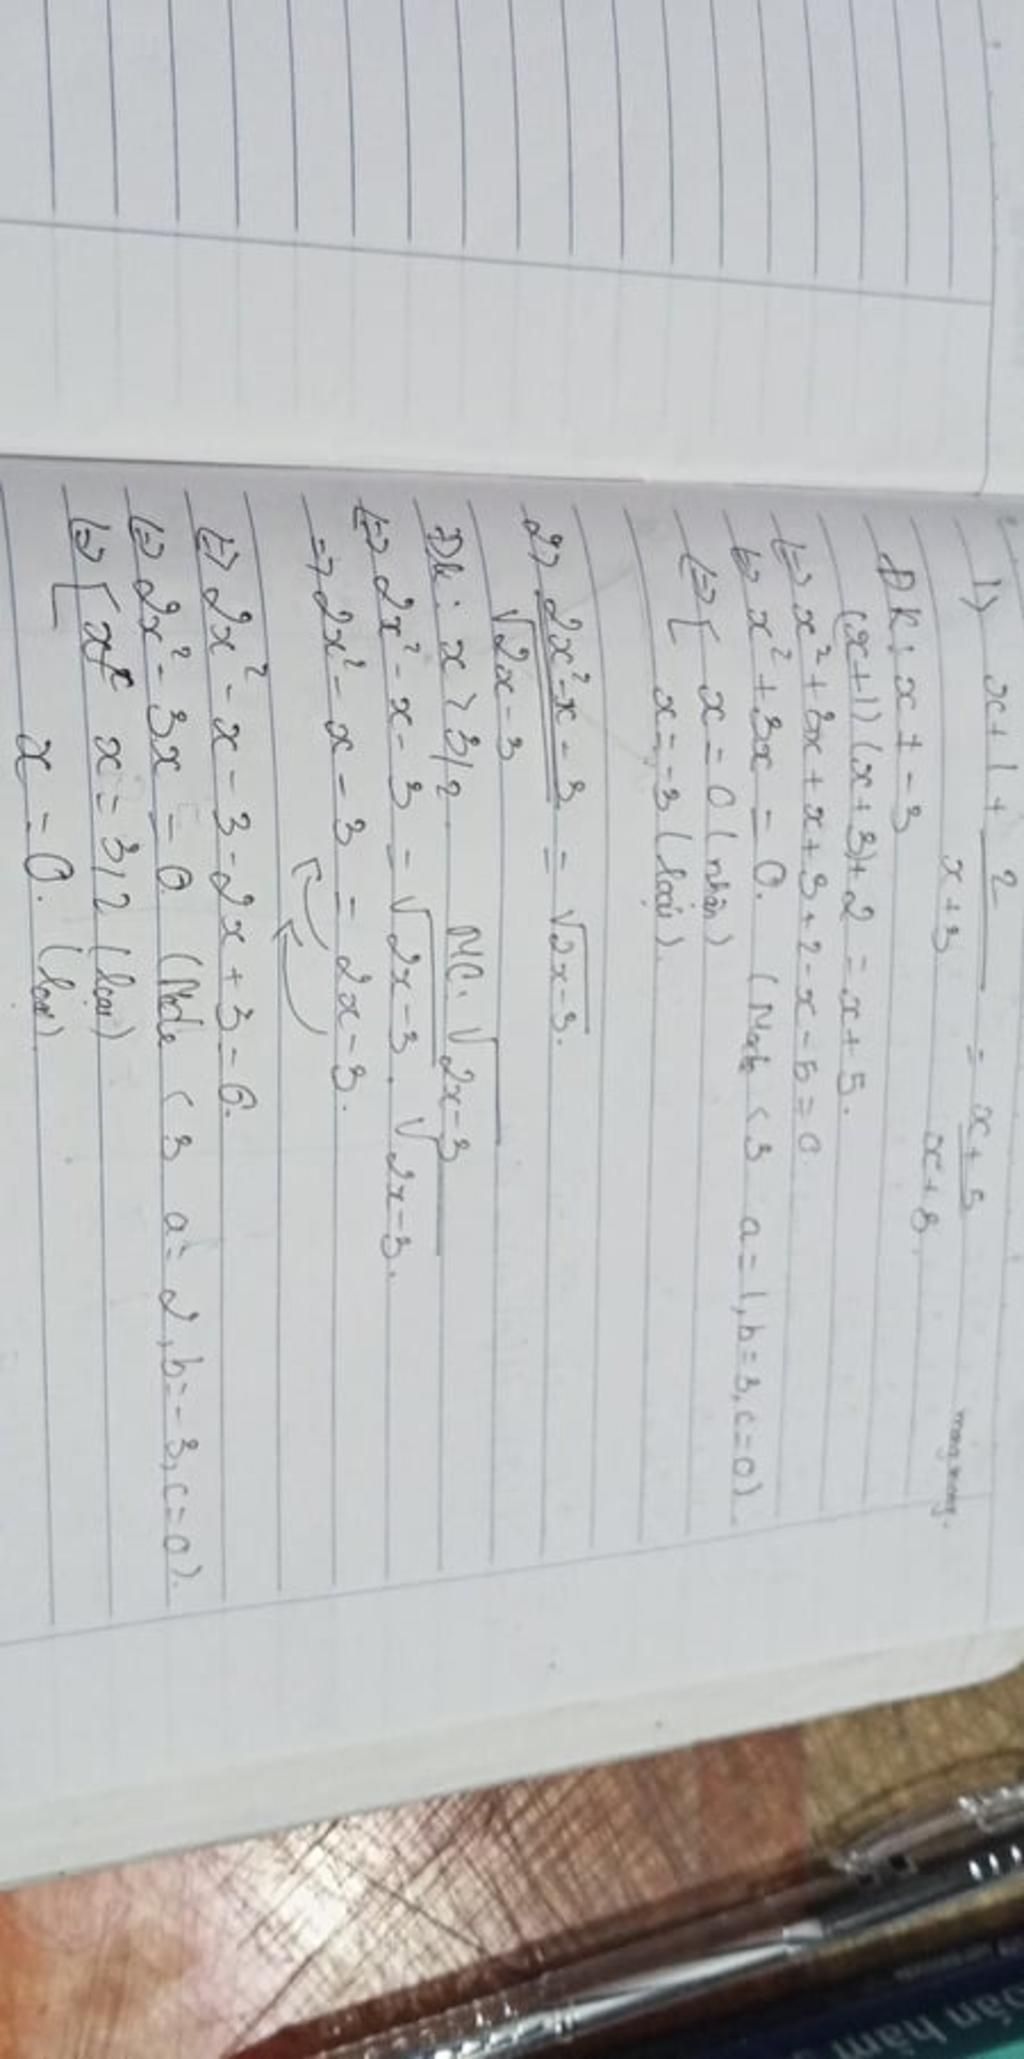 1) x+1 + 2/(x+3) = (x+5)/(x+3)
ĐK: x ≠ -3
(x+1)(x+3)+2 = x+5.
(=) x²+3x+x+3+2-x-5=0
(=) x²+3x=0. (Mode <3 a=1, b=3, c=0).
(=) [ x=0 (nhận)
x=-3 (loại).
2) (2x²-x-3)/√(2x-3) = √(2x-3).
Đk: x > 3/2 MC: √(2x-3)
(=) 2x²-x-3 = √(2x-3) . √(2x-3).
=> 2x²-x-3 = 2x-3.
(=) 2x²-x-3-2x+3=0.
(=) 2x²-3x=0 (Mode <3 a=2, b=-3, c=0).
(=) [ x=3/2 (loại)
x=0. (loại)
oán hàm